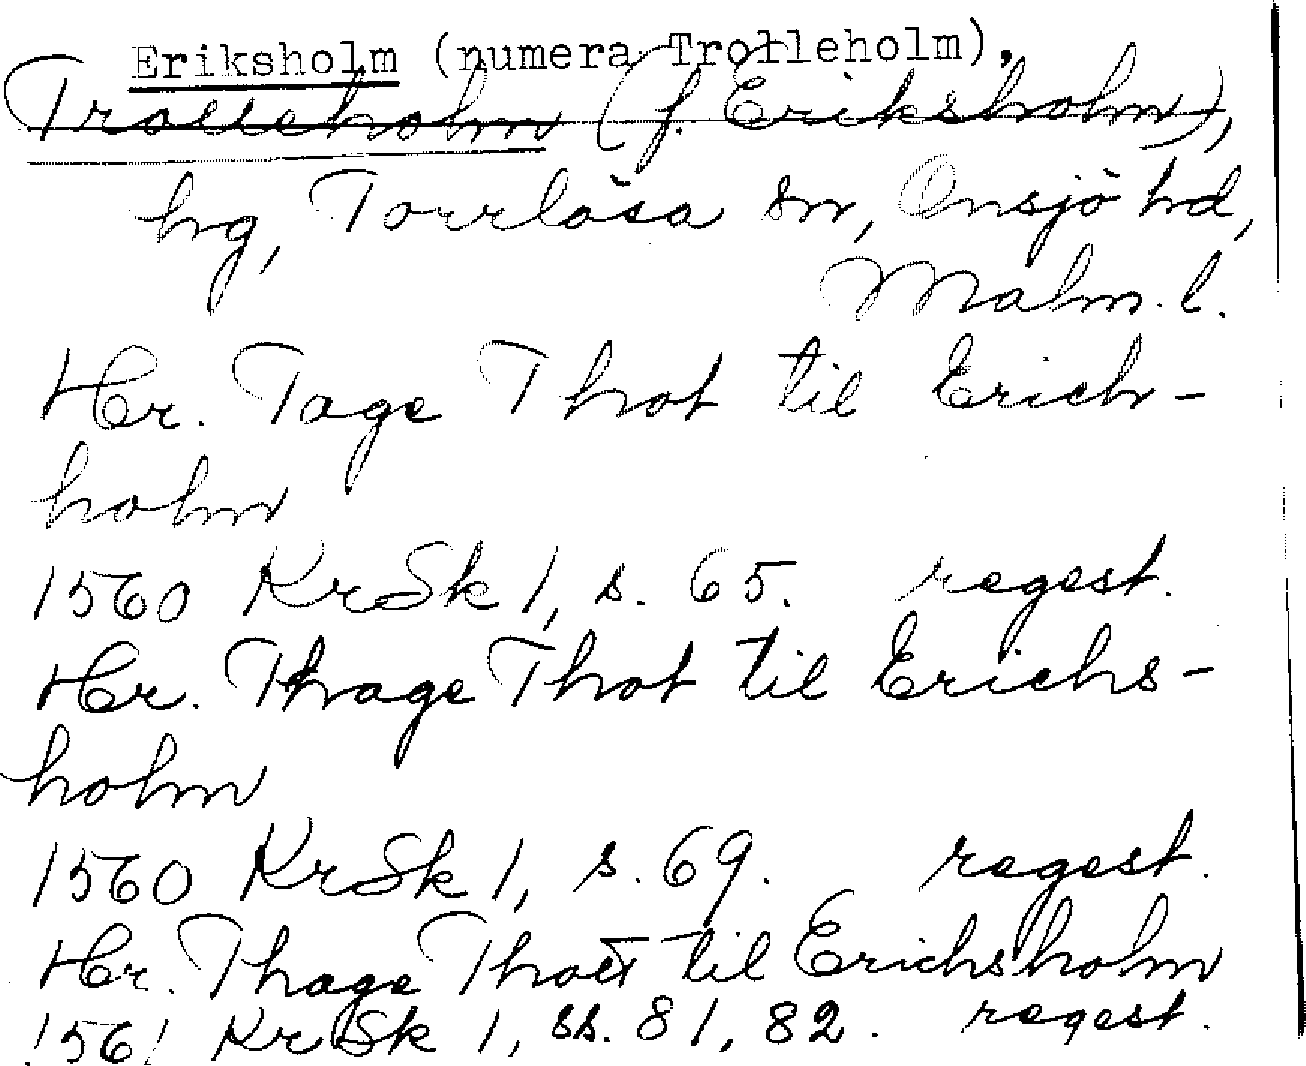 Eriksholm (numera Trolleholm),
Trolleholm (f. Eriksholm),
hg, Torrlösa sn, Onsjö hd,
Malm. l.
Hr. Tage Thot til Erich-
holm
1560 KrSk 1, s. 65. regest.
Hr. Thage Thot til Erichs-
holm
1560 KrSk 1, s. 69. regest.
Hr. Thage Thott til Erichsholm
1561 KrSk 1, ss. 81, 82. regest.